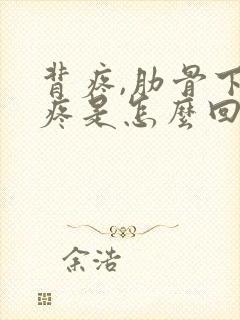 背疼,肋骨下
疼是怎麼回
余浩